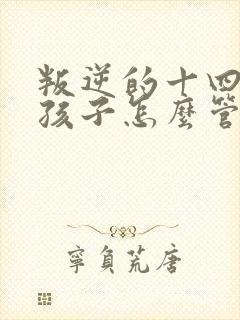 叛逆的十四
孩子怎麼管
寧負荒唐